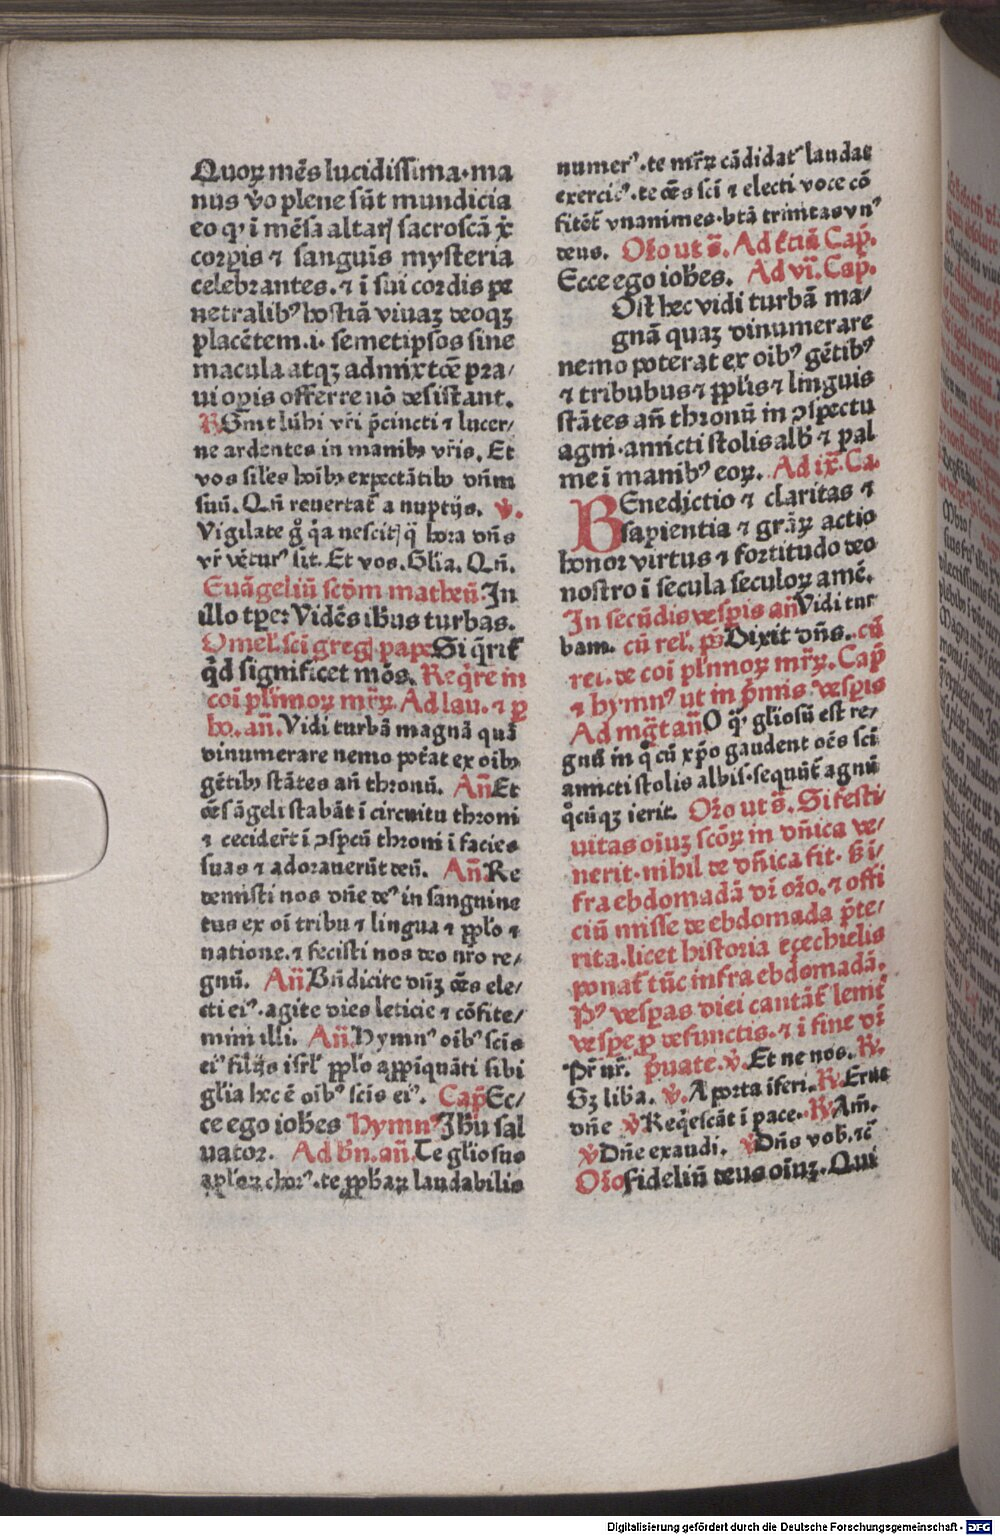 Quoꝝ mẽs lucidissima·ma
nus ṽo plene sũt mundicia
eo ꝙ ĩ mẽsa altarꝭ sacroscã xͥ
corꝑis ⁊ sanguĩs mysteria
celebrantes.⁊ ĩ sui cordis pe
netralibꝰ hostiã viuaꝫ deoqꝫ
placẽtem.i. semetipsos sine
macula atqꝫ admixtõe pra/
ui oꝑis offerre nõ desistant.
℟ Sint lũbi vr̃i p̃cincti ⁊ lucer/
ne ardentes in manibꝰ vr̃is. Et
vos siles hoĩbꝰ expectãtibꝰ dñm
suũ. Qñ reuertat̃ a nuptijs. ℣.
Vigilate g̊ q̃a nescitꝭ q̃ hora dñs
vr̃ vẽturꝰ sit. Et vos. Glĩa. Qñ.
Euãgeliũ scd̃m matheũ In
illo tꝑe: Vidẽs ihus turbas.
Omel̃. sci gregꝭ pape Si q̃rit̃
q̃d significet mõs. Req̃re in
coĩ pl̃imoꝝ mr̃ꝝ. Ad lau. ⁊ ꝑ
ho. añ. Vidi turbã magnã quã
dinumerare nemo potãt ex oĩbꝰ
gẽtibꝰ stãtes añ thronũ. Añ Et
oẽs ãgeli stabãt ĩ circuitu throni
⁊ cecider̃t ĩ ↄspcũ throni ĩ facies
suas ⁊ adorauerũt deũ. Añ Re
demisti nos dñe deꝰ in sanguine
tuo ex oĩ tribu ⁊ lingua ⁊ ppl̃o ⁊
natione.⁊ fecisti nos deo nr̃o re/
gnũ. Añ Bñdicite dñꝫ oẽs ele/
cti eiꝰ·agite dies leticie ⁊ cõfite/
mini illi. Añ. Hymnꝰ oĩbꝰ scis
eiꝰ filijs isrl̃ ppl̃o aꝓpĩquãti sibi
gl̃ia hec ẽ oĩbꝰ scis eiꝰ. Cap̃ Ec/
ce ego ioh̃es Hymnꝰ Ih̃u sal
uator. Ad bñ. añ. Te gl̃iosus
apl̃oꝝ chorꝰ·te ꝓph̃aꝝ laudabilis
numerꝰ·te mr̃ꝝ cãdidatꝰ laudat
exercitꝰ·te oẽs sci ⁊ electi voce cõ
fitẽt̃ vnanimes·btã trinitas vnꝰ
deus. Or̃o ut s̃. Ad t̃ciã Cap̃.
Ecce ego ioh̃es. Ad vi. Cap̃.
Ost hec vidi turbã ma/
gnã quaꝫ dinumerare
nemo poterat ex oĩbꝰ gẽtibꝰ
⁊ tribubus ⁊ ppl̃is ⁊ linguis
stãtes añ thronũ in ↄspectu
agni·amicti stolis alb̃ ⁊ pal
me ĩ manibꝰ eoꝝ. Ad ix. Ca.
BEnedictio ⁊ claritas ⁊
sapientia ⁊ gr̃aꝝ actio
honor virtus ⁊ fortitudo deo
nostro ĩ secula seculoꝝ amẽ.
In secũdis vesꝑis añ Vidi tur
bam. cũ rel̃. p̃s Dixit dñs. cũ
rel. de coĩ pl̃imoꝝ mr̃ꝝ. Cap̃
⁊ hymnꝰ ut in p̃mis vesꝑis
Ad mg̃t añ O q̃ gl̃iosũ est re/
gnũ in q̊ cũ xp̃o gaudent oẽs sci
amicti stolis albis·sequũt̃ agnũ
q̊cũqꝫ ierit. Or̃o ut s̃. Si festi/
uitas oĩuꝫ scõꝝ in dñica ve/
nerit·nihil de dñica fit. S̃ ĩ/
fra ebdomadã di oro.⁊ offi
ciũ misse de ebdomada p̃te/
rita·licet historia ezechielis
ponat̃ tũc infra ebdomadã.
Pꝰ vesꝑas diei cantãt̃ lemt̃
vesꝑe ꝑ defunctis.⁊ ĩ fine di
Pr̃ nr̃. p̃uate. ℣. Et ne nos. ℟.
Sꝫ liba. ℣. A porta ĩferi. ℟. Erue
dñe ℣ Req̃escãt ĩ pace. ℟. Am̃.
℣ Dñe exaudi. ℣ Dñs vob. ⁊c̃
Or̃o fideliũ deus oĩuꝫ. Qui
Digitalisierung gefördert durch die Deutsche Forschungsgemeinschaft - DFG